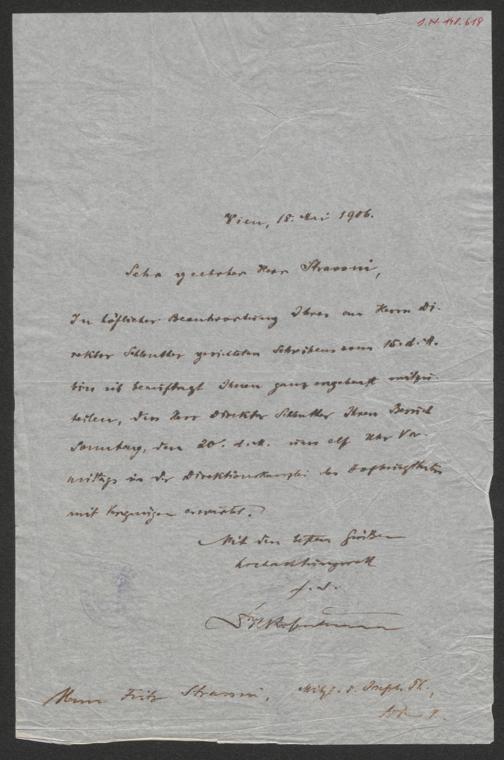 J.N. 148.618
Wien, 18. Mai 1906.
Sehr geehrter Herr Strassni,
In höflicher Beantwortung Ihres an Herrn Di-
rektor Schlenther gerichteten Schreibens vom 15. d. M.
bin ich beauftragt Ihnen ganz ergebenst mitzu-
teilen, dass Herr Direktor Schlenther Ihren Besuch
Sonntag, den 20. d. M. um elf Uhr Vor-
mittags in der Direktionskanzlei des Hofburgtheaters
mit Vergnügen erwartet.
Mit den besten Grüßen
hochachtungsvoll
Herrn Fritz Strassni, Mitgl. d. Josefst. Th.,
Wien